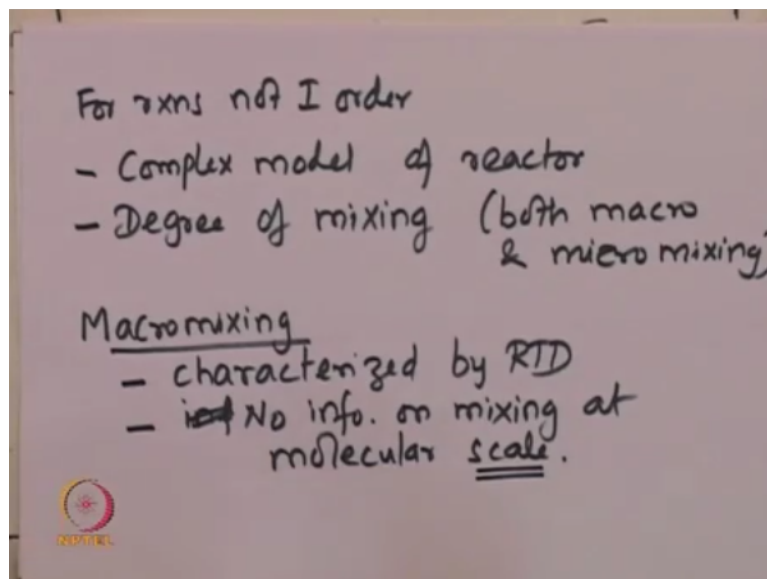 For rxns not I order
- Complex model of reactor
- Degree of mixing (both macro
& micromixing)
Macromixing
- characterized by RTD
- No info. on mixing at
molecular scale.
NPTEL